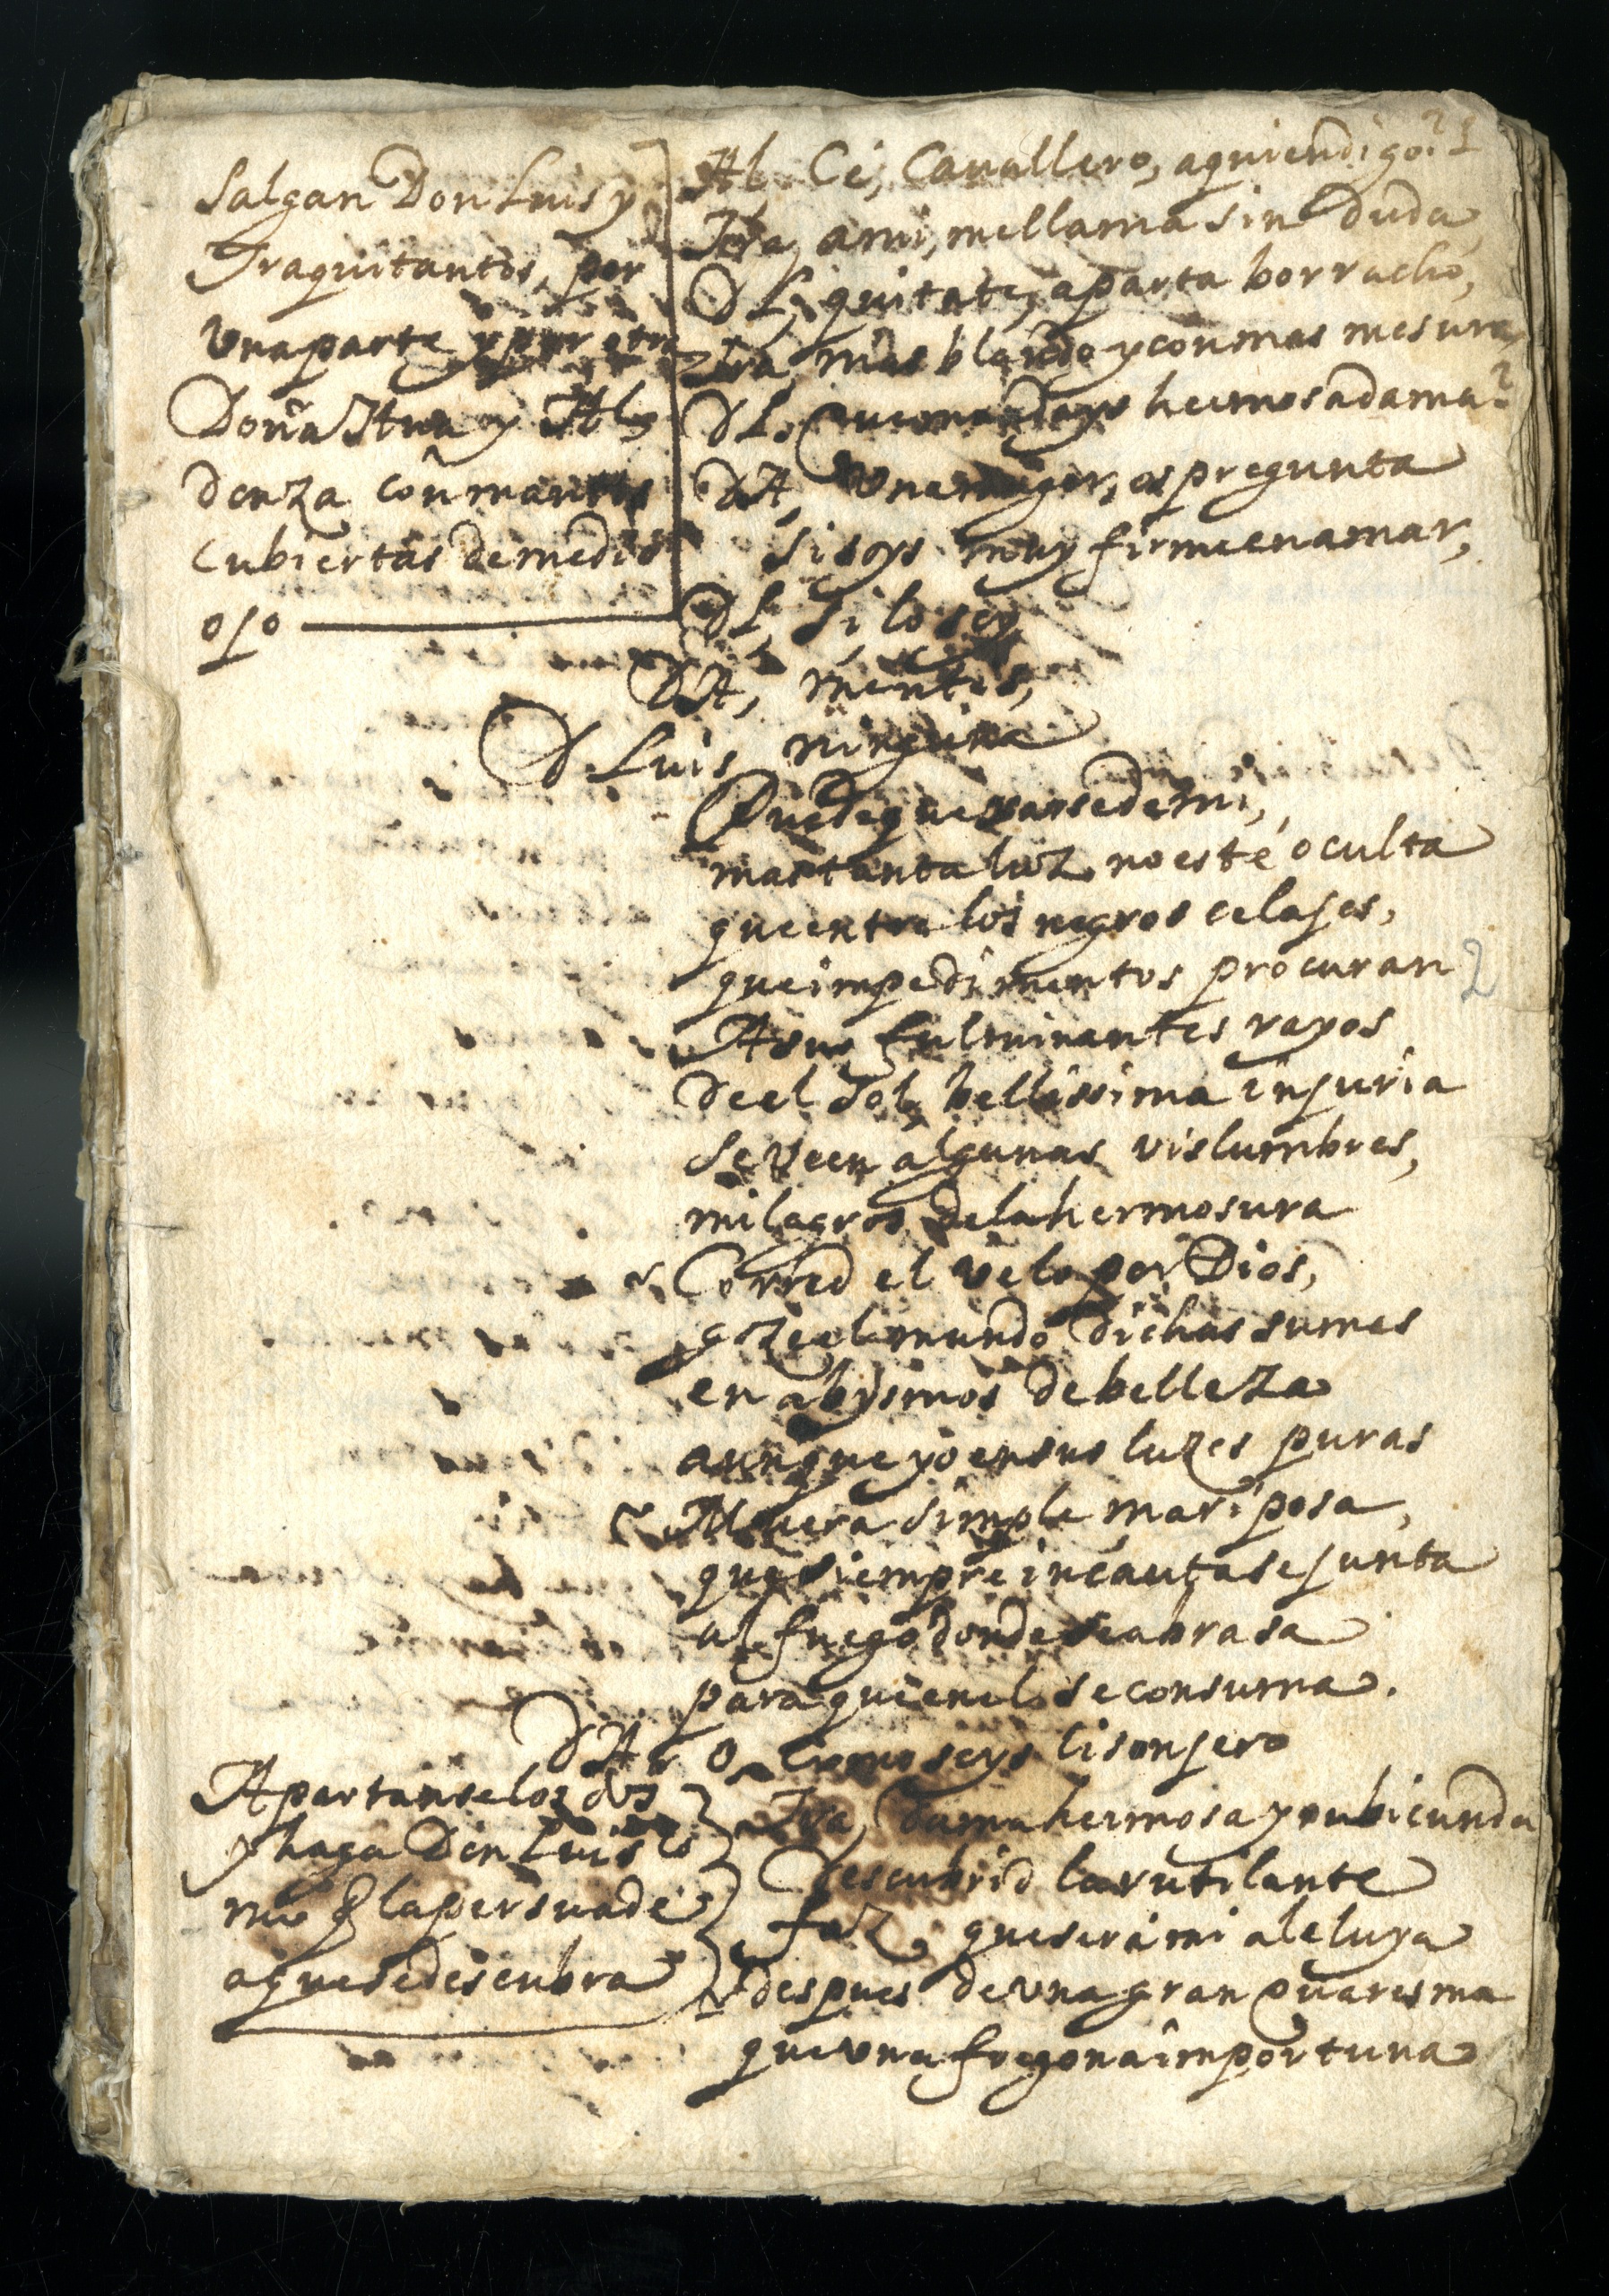 Salgan Don Luis y
Traquitantos, por
Una parte y por otra
Doña Ana y Al
denza con mantos
cubiertas de medio
ojo
Al, Ce, Cauallero, a quien digo?
Tra, a mi, me llama sin duda
DL, quitate, aparta borracho,
Tra, mas blando y con mas mesura,
DL. Que mandays hermosa dama?
DA, Una muger, os pregunta
si soys muy firme en amar,
DL, Si lo soy
DA, mentis,
D Luis, ninguna
Puede quexarse de mi,
mas tanta luz no esté oculta
que entre los negros celajes,
que impedimentos procuran
A sus fulminantes rayos
de el Sol, bellissima injuria
se veen algunas vislumbres,
milagros de la hermosura
Corred el velo por Dios,
goze el mundo dichas sumas
en abysmos de belleza
aunque yo en sus luzes puras
Muera simple mariposa,
que siempre incauta se junta
al fuego donde se abrasa
para que en el se consuma.
DA, O como soys lisonjero
Apartanse los dos
y haga Don Luis co
mo q la persuade
a que se descubra
Tra, Dama hermosa y rubicunda
Descubrid la rutilante
faz, que sera mi aleluya
despues de una gran quaresma
que una fregona importuna
2